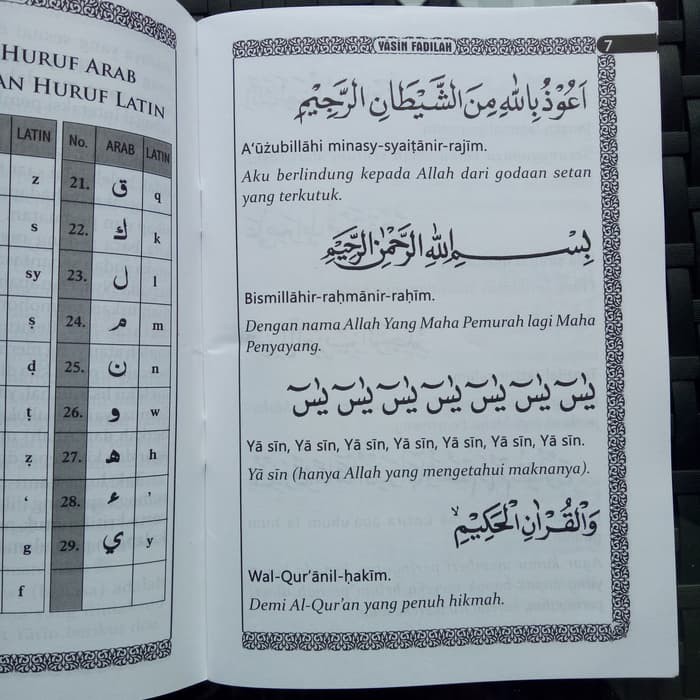 HURUF ARAB
AN HURUF LATIN
LATIN No. ARAB LATIN
z 21. ق q
s 22. ك k
sy 23. ل l
ṣ 24. م m
ḍ 25. ن n
ṭ 26. و w
ẓ 27. ه h
‘ 28. ء ’
g 29. ي y
f
YASIN FADILAH 7
اَعُوْذُ بِاللهِ مِنَ الشَّيْطَانِ الرَّجِيْمِ
A‘ūżubillāhi minasy-syaiṭānir-rajīm.
Aku berlindung kepada Allah dari godaan setan
yang terkutuk.
بِسْمِ اللهِ الرَّحْمٰنِ الرَّحِيْمِ
Bismillāhir-raḥmānir-raḥīm.
Dengan nama Allah Yang Maha Pemurah lagi Maha
Penyayang.
يٰسۤ يٰسۤ يٰسۤ يٰسۤ يٰسۤ يٰسۤ يٰسۤ
Yā sīn, Yā sīn, Yā sīn, Yā sīn, Yā sīn, Yā sīn, Yā sīn.
Yā sīn (hanya Allah yang mengetahui maknanya).
وَالْقُرْاٰنِ الْحَكِيْمِۙ
Wal-Qur’ānil-ḥakīm.
Demi Al-Qur’an yang penuh hikmah.